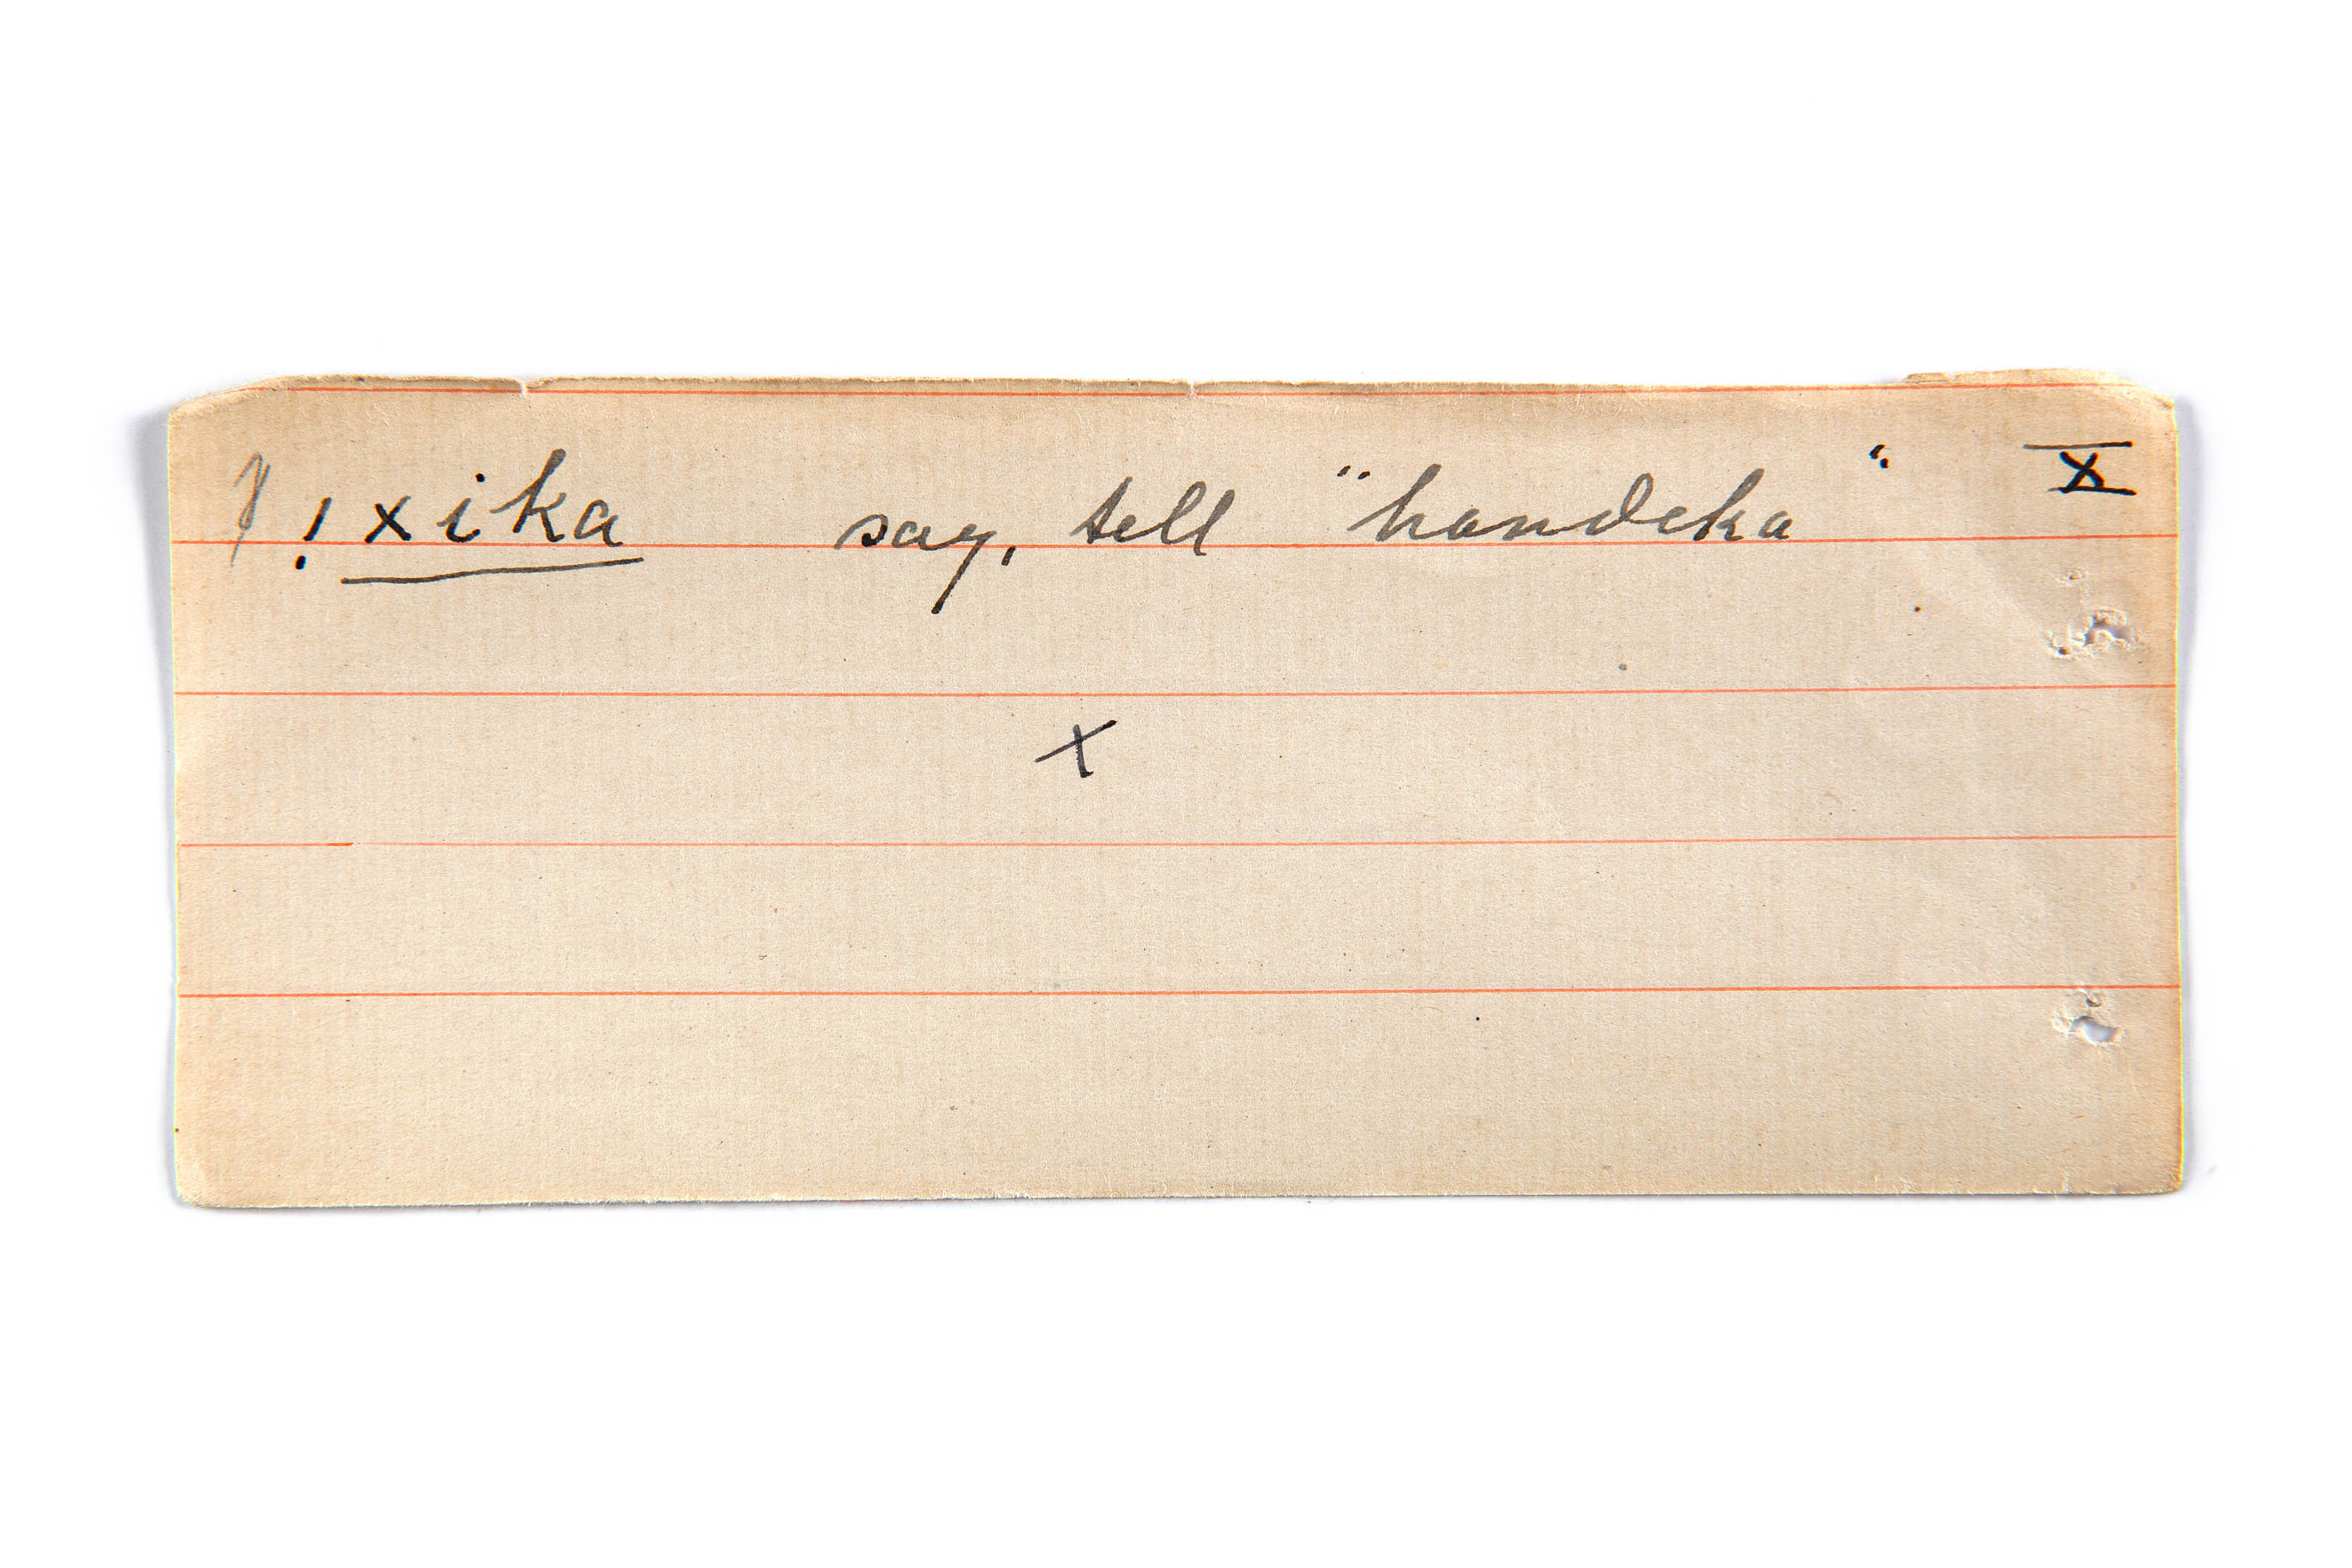 !xika say, tell "handeka" X
x